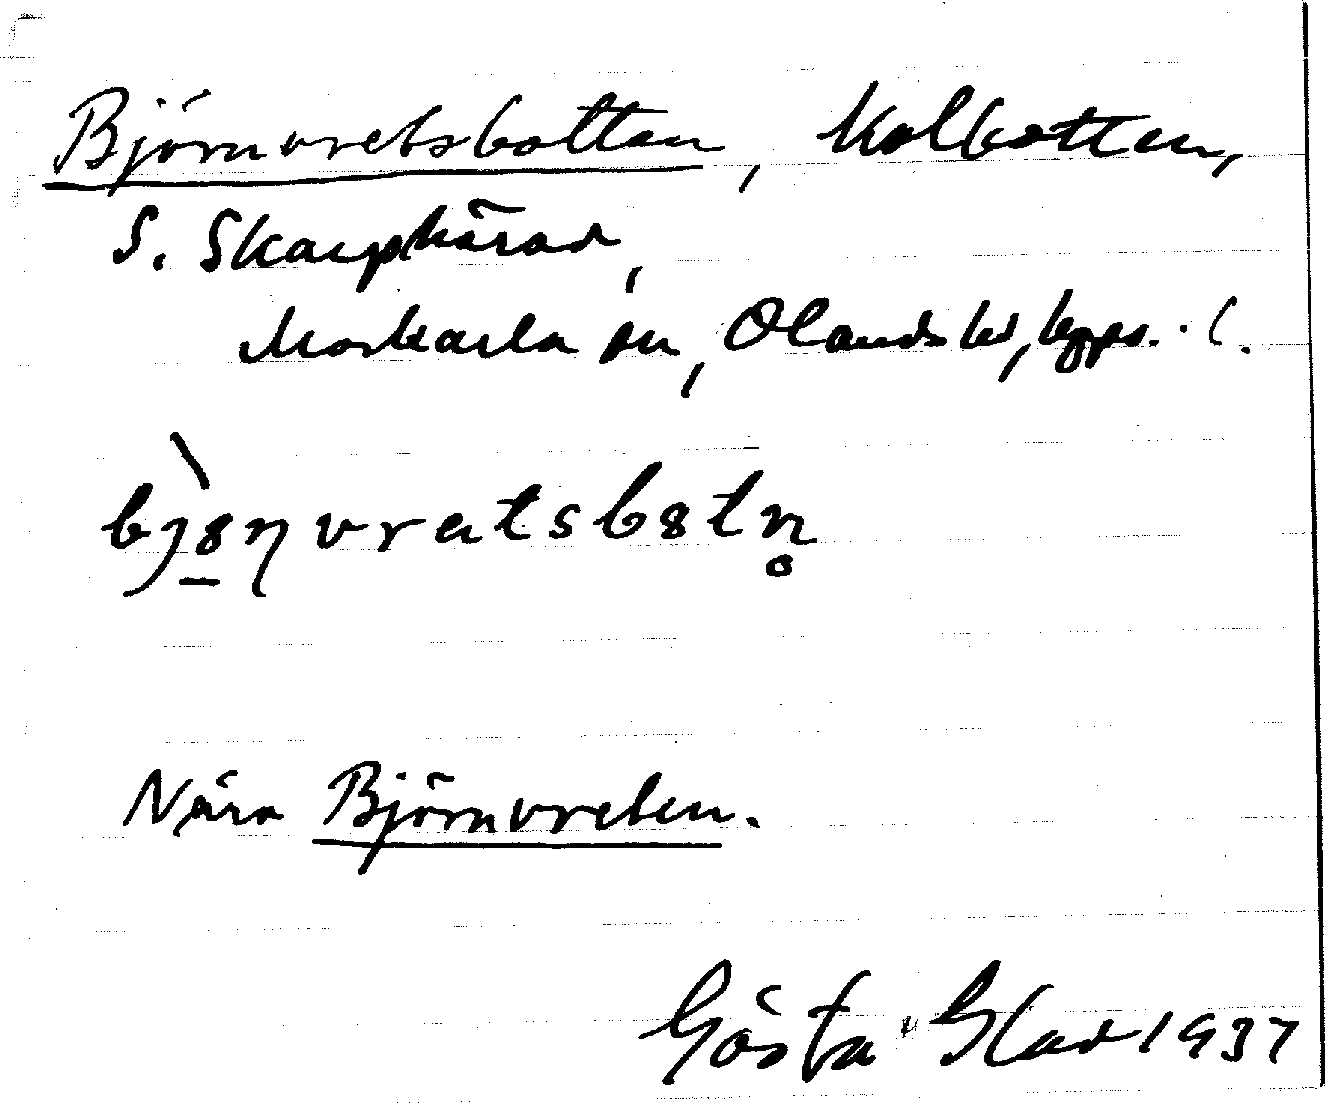 Björnvretsbotten, Kolbotten,
S. Skarphärad,
Morkarla sn, Olands hd, Upps. l.
bjs̲ŋvretsbstn̥
Nära Björnvreten.
Gösta Blad 1937